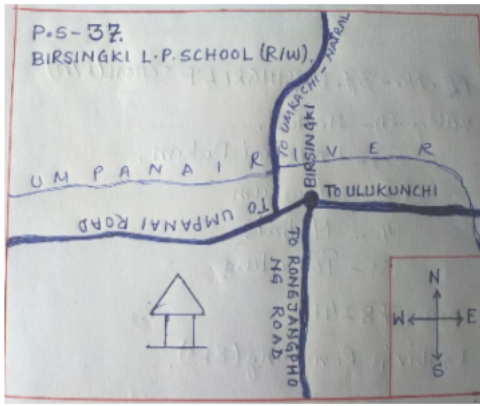 P.S-37.
BIRSINGKI L.P. SCHOOL (R/W).
TO UMRACHI-NATRAL
BIRSINGKI
UMPANAI RIVER
TO ULUKUNCHI
TO UMPANAI ROAD
TO RONGJANGPHO
NG ROAD
N
W E
S